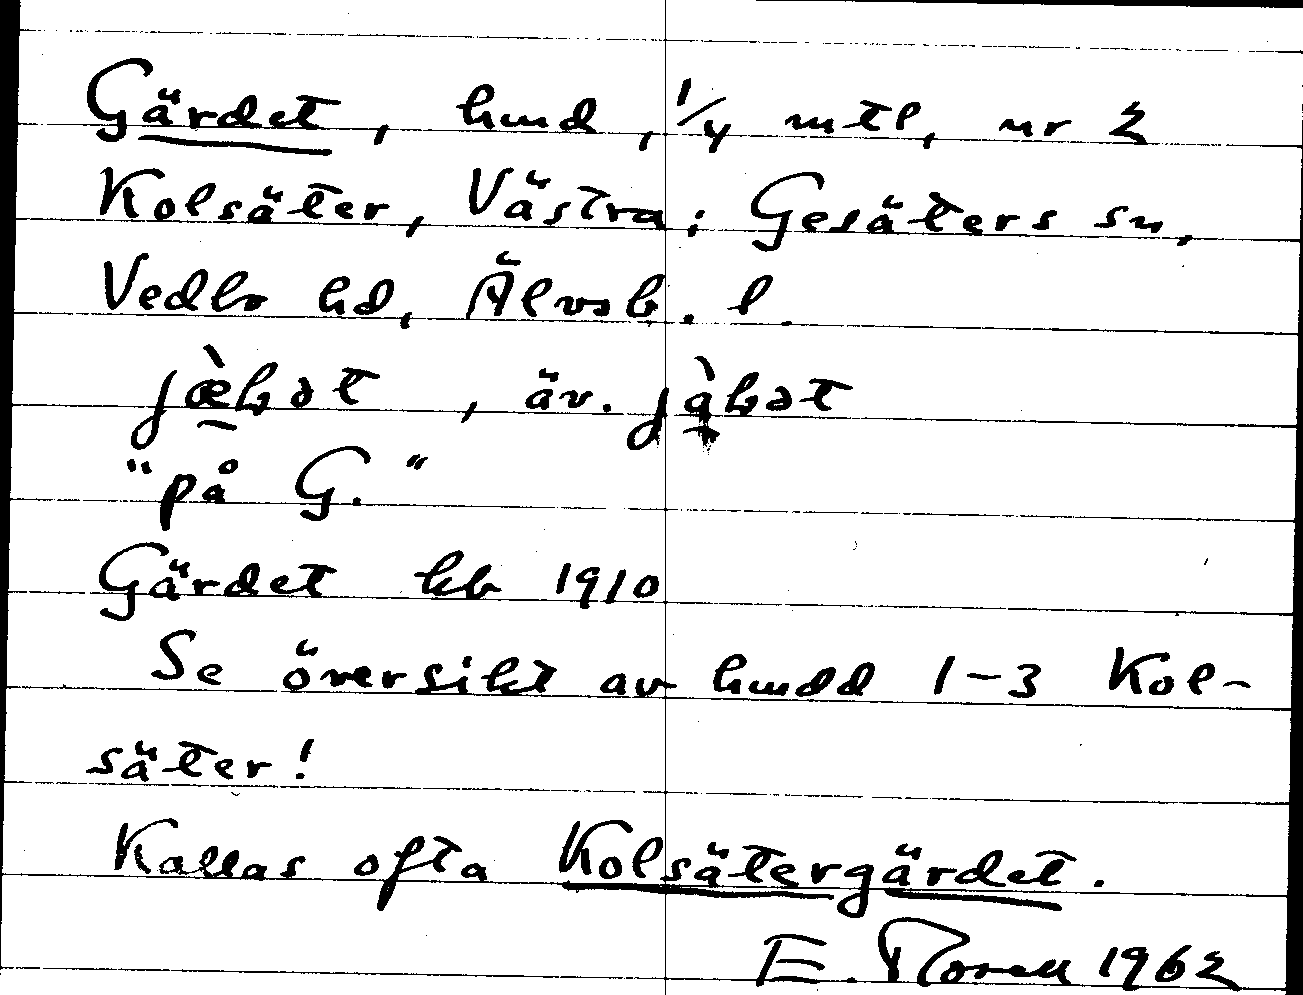 Gärdet, hmd, 1/4 mtl, nr 2
Kolsäter, Västra; Gesäters sn,
Vedbo hd, Älvsb. l.
, äv.
"på G."
Gärdet kb 1910
Se översikt av hmdd 1-3 Kol-
säter!
Kallas ofta Kolsätergärdet.
E. Noreen 1962